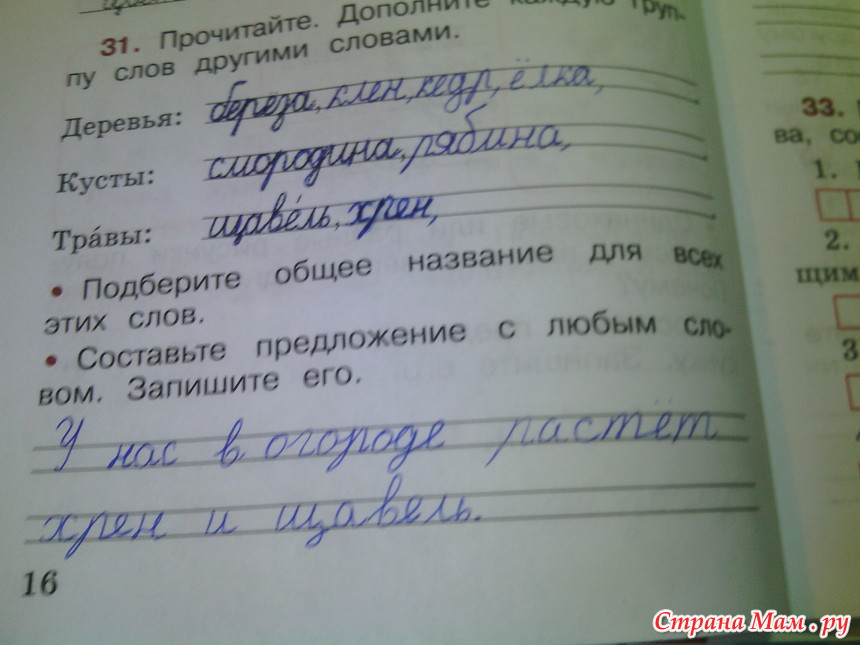 31. Прочитайте. Дополните каждую груп-
пу слов другими словами.
Деревья: берёза, клен, кедр, ёлка,
Кусты: смородина, рябина,
Трáвы: щавéль, хрен,
• Подберите общее название для всех
этих слов.
• Составьте предложение с любым сло-
вом. Запишите его.
У нас в огороде растёт
хрен и щавель.
16
33.
ва, со
1.
2.
щим
3
Страна Мам.ру